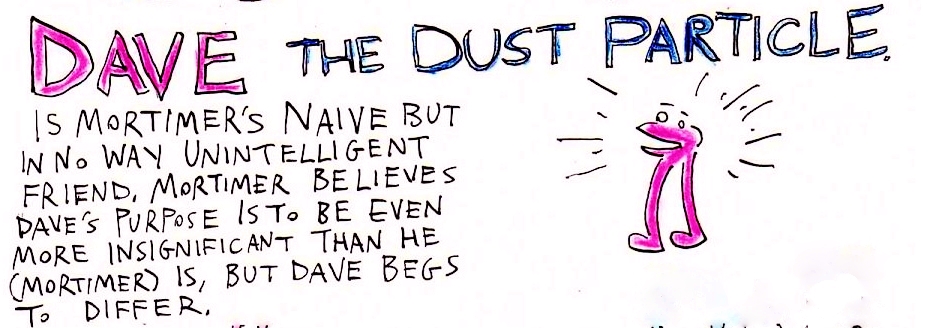 DAVE THE DUST PARTICLE.
IS MORTIMER'S NAIVE BUT
IN NO WAY UNINTELLIGENT
FRIEND. MORTIMER BELIEVES
DAVE'S PURPOSE IS TO BE EVEN
MORE INSIGNIFICANT THAN HE
(MORTIMER) IS, BUT DAVE BEGS
TO DIFFER.